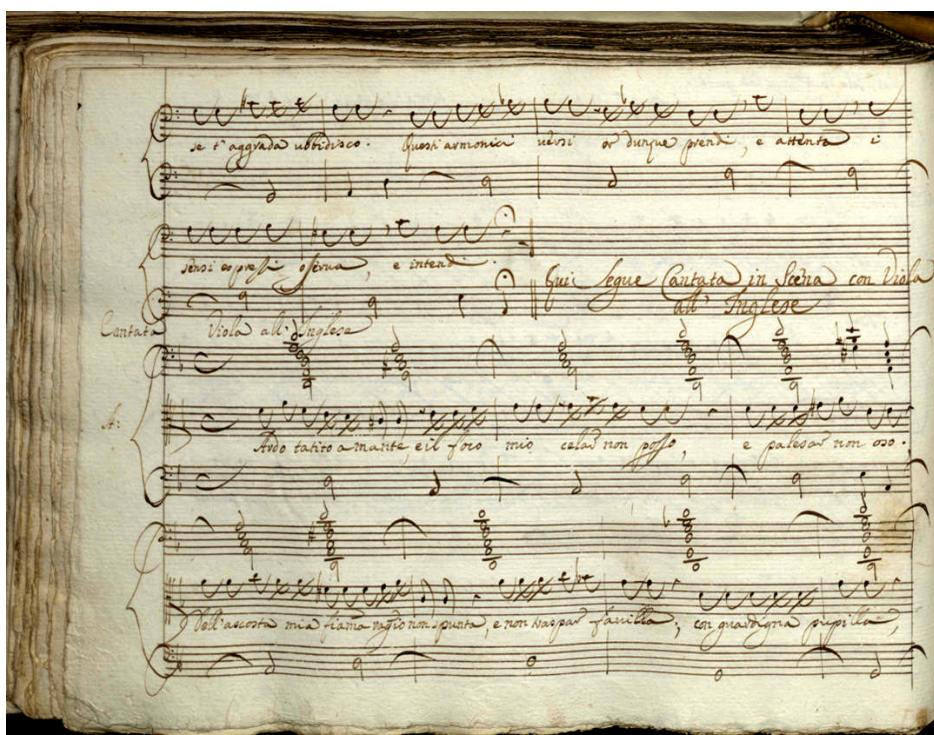 se t'aggrada ubbidisco. Questi armonici versi or dunque prendi, e attenta i
sensi espressi osserva, e intendi.
Qui segue Cantata in Scena con Viola
all' Inglese
Cantata Viola all' Inglese
A:
Ardo tacito amante, e il foco mio celar non posso, e palesar non oso.
Dell'ascosta mia fiama raggio non spunta, e non traspar favilla; con guardigna pupilla,